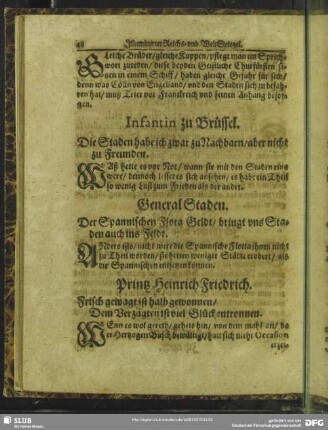 48 Illuminirter Reichs- vnd Welt Spiegel.
Gleiche Brüder/gleiche Kappen/pflegt man im Sprich-
wort zureden/ diese beyden Geistliche Churfürsten sit-
zen in einem Schiff/ haben gleiche Gefahr für sich/
denn was Cölln von Engelland/ vnd den Staden sich zu befah-
ren hat/ muß Trier vor Franckreich vnd seinen Anhang besor-
gen.
Infantin zu Brüssel.
Die Staden habe ich zwar zu Nachbarn/aber nicht
zu Freunden.
Waß hette es vor Not/ wann sie mit den Staden eins
were/ dennoch lisset es sich ansehen/ es habe ein Theil
so wenig Lust zum Frieden als der ander.
General Staden.
Der Spannischen Flota Geldt/ bringt vns Sta-
den auch ins Feldt.
Anders ists/ nicht/ were die Spannische Flotta ihnen nicht
zu Theil worden/ sie hetten weniger Städte erobert/ als
die Spannischen entsetzen können.
Printz Heinrich Friedrich.
Frisch gewagt ist halb gewonnen/
Dem Verzagten ist viel Glück entronnen.
Wenn es wol gereth/ gehets hin/ von dem mahl an/ da
er Hertzogen Busch bewältigt/ hatt sich nicht Occasion
erzei-
SLUB
Wir führen Wissen.
http://digital.slub-dresden.de/
gefördert von der
Deutschen Forschungsgemeinschaft
DFG